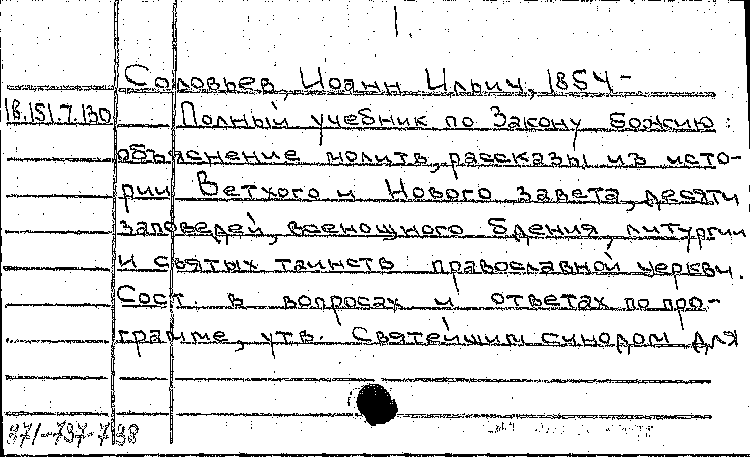 1.
Соловьев, Иоанн Ильич, 1854-
18.151.7.130 Полный учебник по Закону Божию:
объяснение молитв, рассказы из исто-
рии Ветхого и Нового завета, десяти
заповедей, всенощного бдения, литургии
и святых таинств православной церкви.
Сост. в вопросах и ответах по про-
грамме, утв. Святейшим синодом для
871-737-738